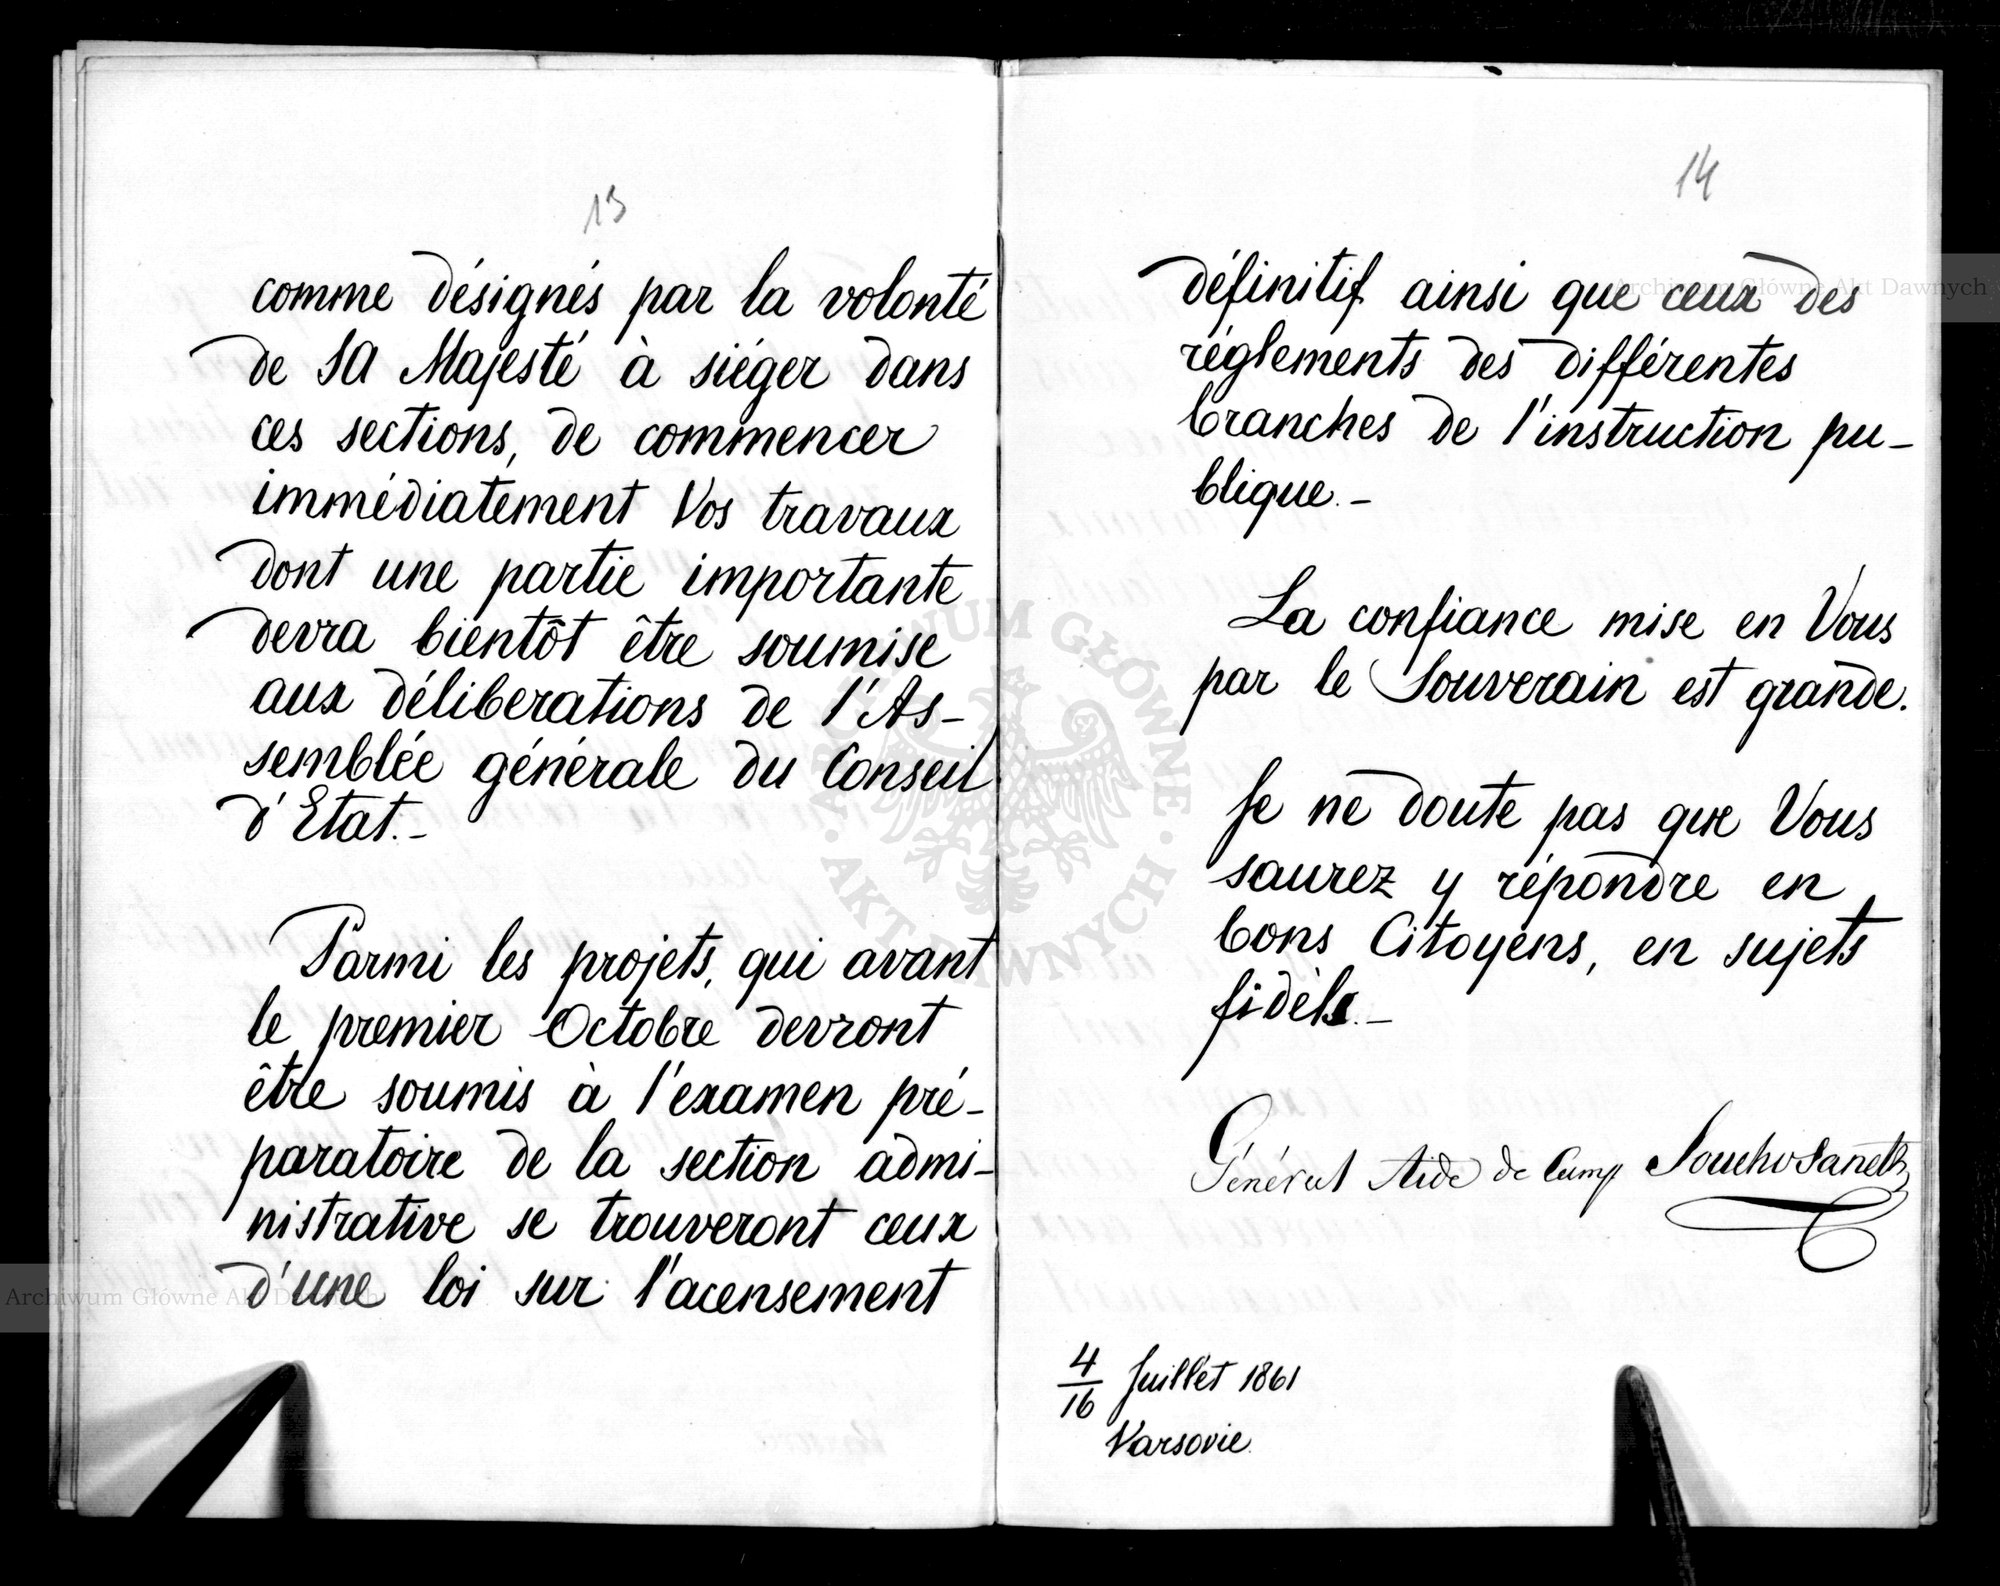 13
comme désignés par la volonté
de SA Majesté à siéger dans
ces sections, de commencer
immédiatement Vos travaux
dont une partie importante
devra bientôt être soumise
aux déliberations de l'As-
semblée générale du Conseil
d'Etat.-
Parmi les projets, qui avant
le premier Octobre devront
être soumis à l'examen pré-
paratoire de la section admi-
nistrative se trouveront ceux
d'une loi sur l'acensement
14
définitif ainsi que ceux des
réglements des différentes
branches de l'instruction pu-
blique.-
La confiance mise en Vous
par le Souverain est grande.
Je ne doute pas que Vous
saurez y répondre en
bons Citoyens, en sujets
fidèls.-
Général Aide de Camp Souchosanett
4/16 Juillet 1861
Varsovie.
Archiwum Główne Akt Dawnych
Archiwum Główne Akt Dawnych
ARCHIWUM GŁÓWNE · AKT DAWNYCH ·